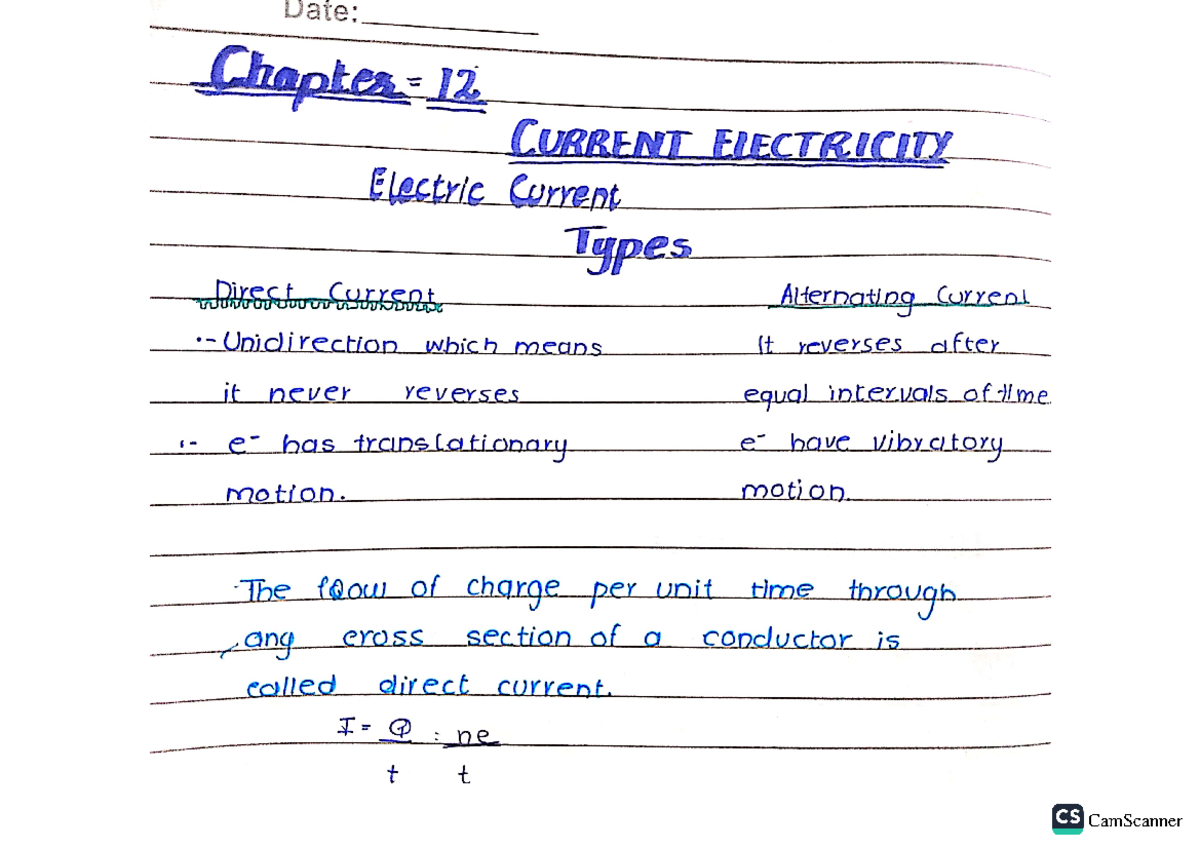 Date:
Chapter = 12
CURRENT ELECTRICITY
Electric Current
Types
Direct Current Alternating Current
:- Unidirection which means It reverses after
it never reverses equal intervals of time
:- e⁻ has translationary e⁻ have vibratory
motion. motion
The flow of charge per unit time through
any cross section of a conductor is
called direct current.
I = Q : ne
t t
CS CamScanner